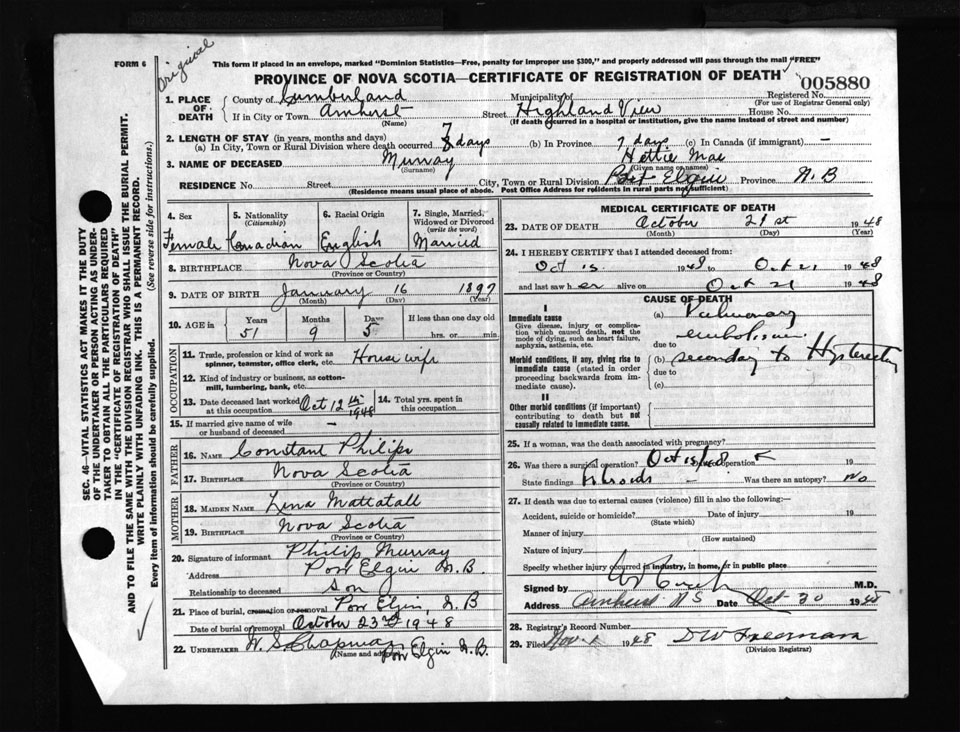 FORM 6
Original
This form if placed in an envelope, marked "Dominion Statistics—Free, penalty for improper use $300," and properly addressed will pass through the mail "FREE"
PROVINCE OF NOVA SCOTIA—CERTIFICATE OF REGISTRATION OF DEATH
005880
Registered No.
(For use of Registrar General only)
1. PLACE OF DEATH
County of Cumberland Municipality of
If in City or Town Amherst Street Highland View House No.
(Name) (If death occurred in a hospital or institution, give the name instead of street and number)
2. LENGTH OF STAY (in years, months and days)
(a) In City, Town or Rural Division where death occurred 7 days (b) In Province 7 days (c) In Canada (if immigrant) —
3. NAME OF DECEASED Murray Hettie Mae
(Surname) (Given name or names)
RESIDENCE No. Street City, Town or Rural Division Port Elgin Province N.B
(Residence means usual place of abode. Post Office Address for residents in rural parts not sufficient)
4. Sex Female
5. Nationality (Citizenship) Canadian
6. Racial Origin English
7. Single, Married, Widowed or Divorced (write the word) Married
8. BIRTHPLACE Nova Scotia
(Province or Country)
9. DATE OF BIRTH January 16 1897
(Month) (Day) (Year)
10. AGE in Years Months Days If less than one day old
51 9 5 hrs. or min.
OCCUPATION
11. Trade, profession or kind of work as spinner, teamster, office clerk, etc. House wife
12. Kind of industry or business, as cotton-mill, lumbering, bank, etc.
13. Date deceased last worked at this occupation Oct 12th 1948
14. Total yrs. spent in this occupation
15. If married give name of wife or husband of deceased —
FATHER
16. NAME Constant Philips
17. BIRTHPLACE Nova Scotia
(Province or Country)
MOTHER
18. MAIDEN NAME Lena Mattatall
19. BIRTHPLACE Nova Scotia
(Province or Country)
20. Signature of informant Philip Murray
Address Port Elgin N.B.
Relationship to deceased son
21. Place of burial, cremation or removal Port Elgin, N.B
Date of burial or removal October 23d 1948
22. UNDERTAKER W. S. Chapman
(Name and address) Port Elgin N.B.
MEDICAL CERTIFICATE OF DEATH
23. DATE OF DEATH October 21st 1948
(Month) (Day) (Year)
24. I HEREBY CERTIFY that I attended deceased from:
Oct 15 1948 to Oct 21 1948
and last saw her alive on Oct 21 1948
CAUSE OF DEATH
I
Immediate cause
Give disease, injury or complication which caused death, not the mode of dying, such as heart failure, asphyxia, asthenia, etc.
(a) Pulmonary embolism
due to
Morbid conditions, if any, giving rise to immediate cause (stated in order proceeding backwards from immediate cause).
(b) secondary to Hysterectomy
due to
(c)
II
Other morbid conditions (if important) contributing to death but not causally related to immediate cause.
25. If a woman, was the death associated with pregnancy?
26. Was there a surgical operation? Oct 15/48 operation 19
State findings Fibroids — Was there an autopsy? No
27. If death was due to external causes (violence) fill in also the following:—
Accident, suicide or homicide? Date of injury 19
(State which)
Manner of injury
(How sustained)
Nature of injury
Specify whether injury occurred in industry, in home, or in public place
Signed by M.D.
Address Amherst NS Date Oct 30 1948
28. Registrar's Record Number
29. Filed Nov 1948 DW Freeman
(Division Registrar)
SEC. 46—VITAL STATISTICS ACT MAKES IT THE DUTY
OF THE UNDERTAKER OR PERSON ACTING AS UNDER-
TAKER TO OBTAIN ALL THE PARTICULARS REQUIRED
IN THE "CERTIFICATE OF REGISTRATION OF DEATH"
AND TO FILE THE SAME WITH THE DIVISION REGISTRAR WHO SHALL ISSUE THE BURIAL PERMIT.
WRITE PLAINLY WITH UNFADING INK. THIS IS A PERMANENT RECORD.
Every item of information should be carefully supplied. (See reverse side for instructions.)